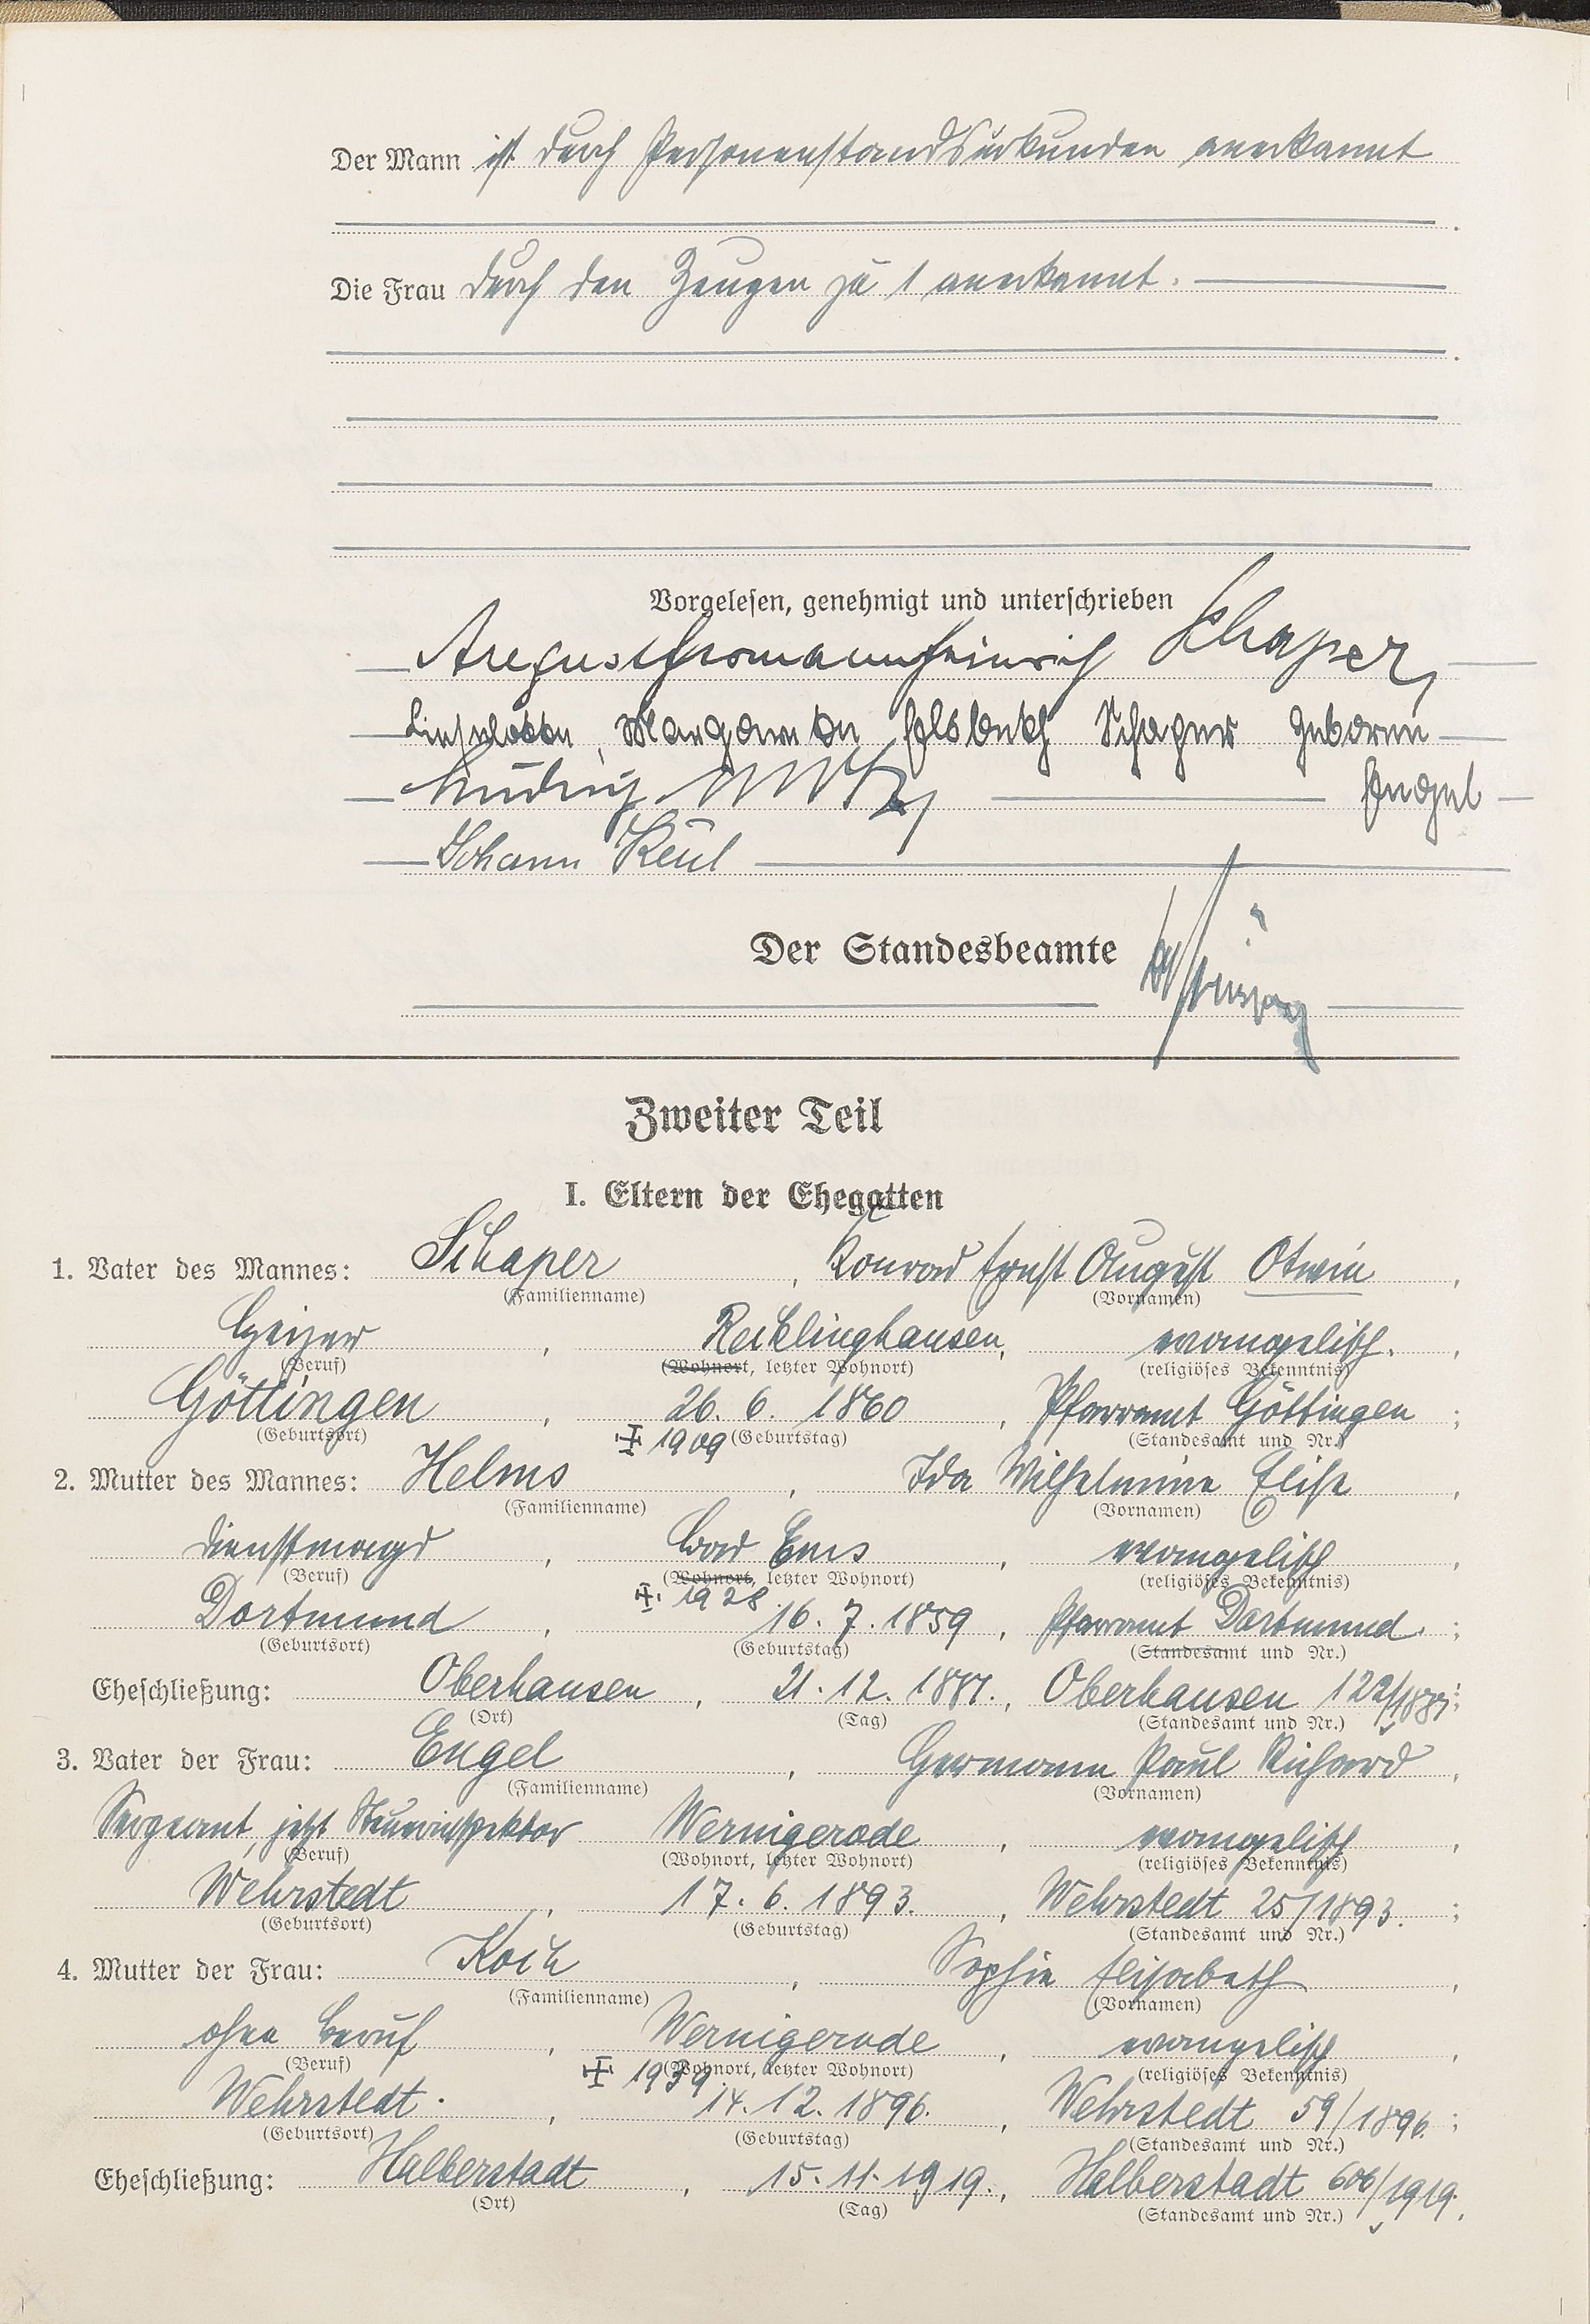 Der Mann ist durch Personenstandsurkunden anerkannt
.
Die Frau durch den Zeugen zu 1 anerkannt.
.
Vorgelesen, genehmigt und unterschrieben
August Hermann Heinrich Schaper,
Lieselotte, Margarete Elsbeth Schaper geborene
Ludwig Engel
Johann Keul
Der Standesbeamte
Zweiter Teil
I. Eltern der Ehegatten
1. Vater des Mannes: Schaper, Konrad Ernst August Otwin,
(Familienname) (Vornamen)
Heizer, Recklinghausen, evangelisch.,
(Beruf) (Wohnort, letzter Wohnort) (religiöses Bekenntnis)
Göttingen, 26. 6. 1860, Pfarramt Göttingen;
(Geburtsort) ✠ 1909 (Geburtstag) (Standesamt und Nr.)
2. Mutter des Mannes: Helms, Ida Wilhelmine Elise,
(Familienname) (Vornamen)
Dienstmagd, Bad Ems, evangelisch,
(Beruf) (Wohnort, letzter Wohnort) (religiöses Bekenntnis)
✠. 1928
Dortmund, 16. 7. 1859, Pfarramt Dortmund.;
(Geburtsort) (Geburtstag) (Standesamt und Nr.)
Eheschließung: Oberhausen, 21. 12. 1887., Oberhausen 122/1887;
(Ort) (Tag) (Standesamt und Nr.)
3. Vater der Frau: Engel, Hermann Paul Richard,
(Familienname) (Vornamen)
Sergeant, jetzt Steuerinspektor Wernigerode, evangelisch,
(Beruf) (Wohnort, letzter Wohnort) (religiöses Bekenntnis)
Wehrstedt, 17. 6. 1893., Wehrstedt 25/1893.;
(Geburtsort) (Geburtstag) (Standesamt und Nr.)
4. Mutter der Frau: Koch, Sophie Elisabeth,
(Familienname) (Vornamen)
ohne Beruf, Wernigerode, evangelisch,
(Beruf) ✠ 1939 (Wohnort, letzter Wohnort) (religiöses Bekenntnis)
Wehrstedt., 14. 12. 1896., Wehrstedt 59/1896.;
(Geburtsort) (Geburtstag) (Standesamt und Nr.)
Eheschließung: Halberstadt, 15. 11. 1919., Halberstadt 606/1919.
(Ort) (Tag) (Standesamt und Nr.)